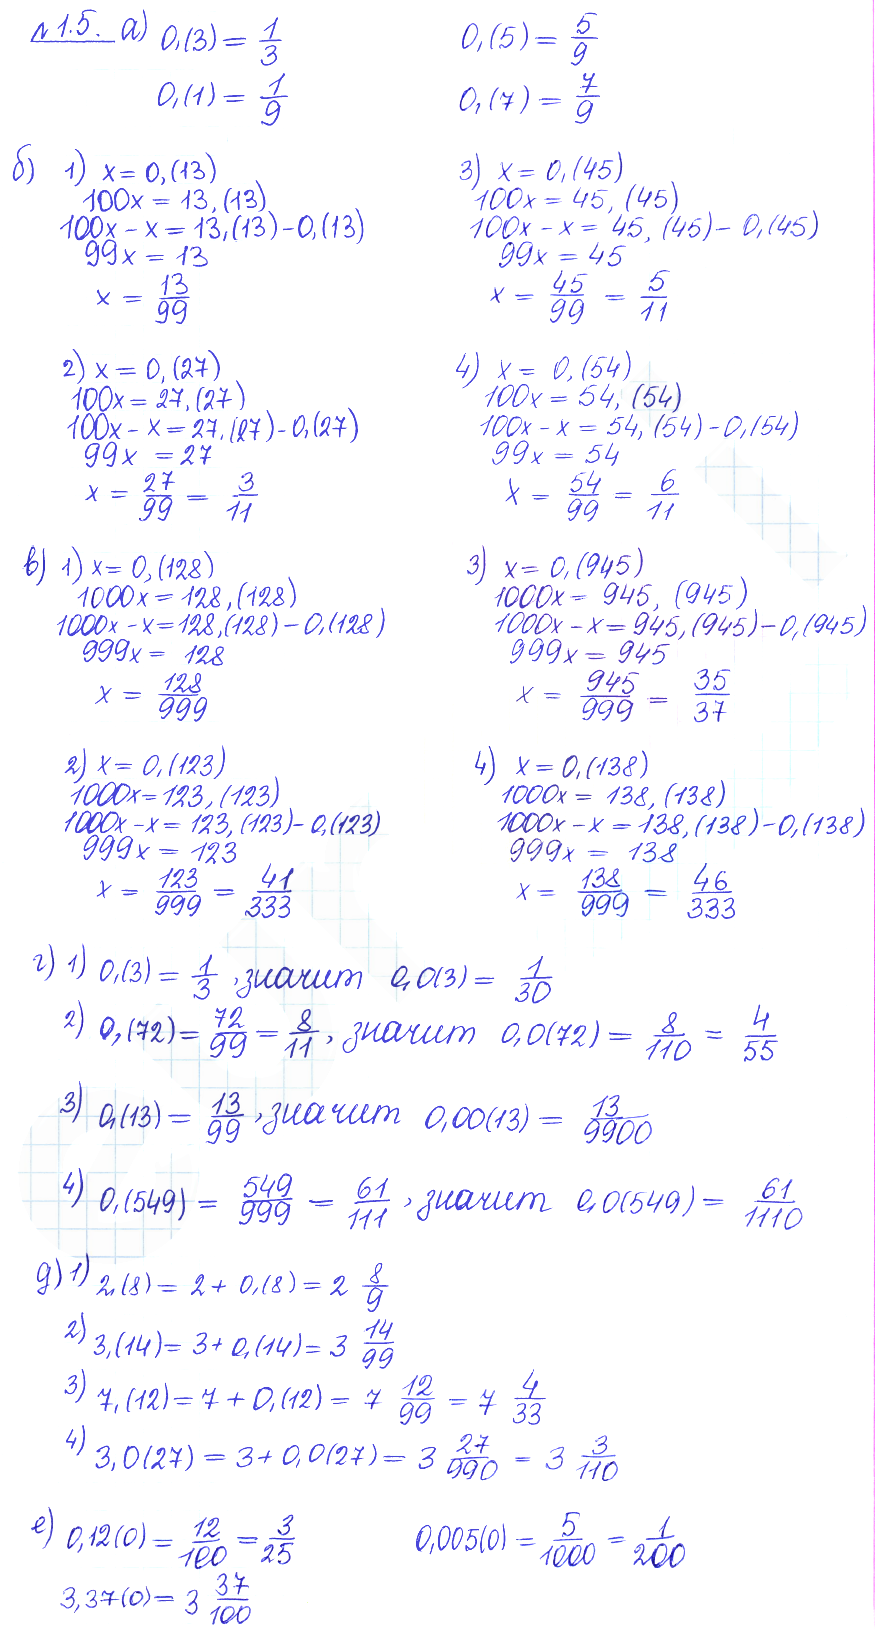 №1.5. а) 0,(3) = 1/3    0,(5) = 5/9
0,(1) = 1/9    0,(7) = 7/9
б) 1) x = 0,(13)
100x = 13,(13)
100x - x = 13,(13) - 0,(13)
99x = 13
x = 13/99
3) x = 0,(45)
100x = 45,(45)
100x - x = 45,(45) - 0,(45)
99x = 45
x = 45/99 = 5/11
2) x = 0,(27)
100x = 27,(27)
100x - x = 27,(27) - 0,(27)
99x = 27
x = 27/99 = 3/11
4) x = 0,(54)
100x = 54,(54)
100x - x = 54,(54) - 0,(54)
99x = 54
x = 54/99 = 6/11
в) 1) x = 0,(128)
1000x = 128,(128)
1000x - x = 128,(128) - 0,(128)
999x = 128
x = 128/999
3) x = 0,(945)
1000x = 945,(945)
1000x - x = 945,(945) - 0,(945)
999x = 945
x = 945/999 = 35/37
2) x = 0,(123)
1000x = 123,(123)
1000x - x = 123,(123) - 0,(123)
999x = 123
x = 123/999 = 41/333
4) x = 0,(138)
1000x = 138,(138)
1000x - x = 138,(138) - 0,(138)
999x = 138
x = 138/999 = 46/333
г) 1) 0,(3) = 1/3, значит 0,0(3) = 1/30
2) 0,(72) = 72/99 = 8/11, значит 0,0(72) = 8/110 = 4/55
3) 0,(13) = 13/99, значит 0,00(13) = 13/9900
4) 0,(549) = 549/999 = 61/111, значит 0,0(549) = 61/1110
д) 1) 2,(8) = 2 + 0,(8) = 2 8/9
2) 3,(14) = 3 + 0,(14) = 3 14/99
3) 7,(12) = 7 + 0,(12) = 7 12/99 = 7 4/33
4) 3,0(27) = 3 + 0,0(27) = 3 27/990 = 3 3/110
е) 0,12(0) = 12/100 = 3/25    0,005(0) = 5/1000 = 1/200
3,37(0) = 3 37/100